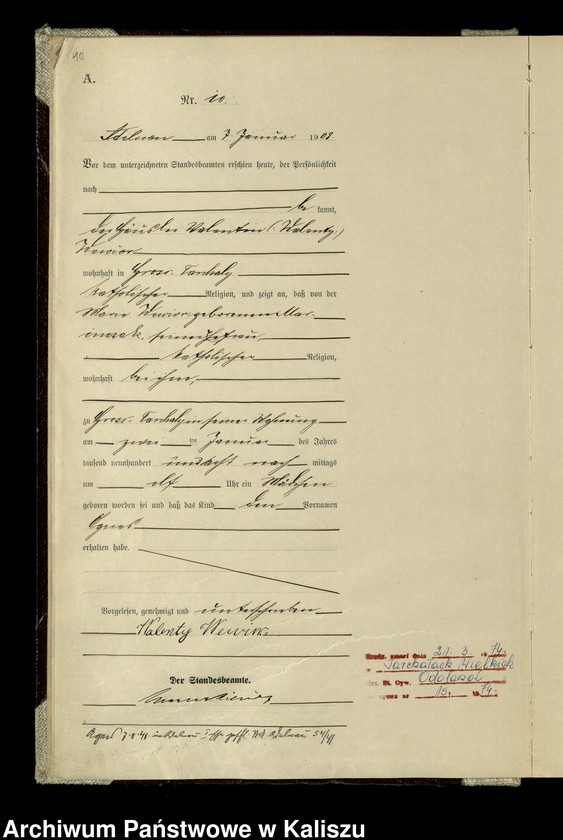 10.
A.
Nr. 10.
Adelnau am 7. Januar 1908
Vor dem unterzeichneten Standesbeamten erschien heute, der Persönlichkeit
nach
be kannt,
der Häusler Valentin (Walenty)
Wewior
wohnhaft in Gross-Tarchaly
katholischer Religion, und zeigt an, daß von der
Marie Wewior geborenen Mar-
seiner Ehefrau,
katholischer Religion,
wohnhaft bei ihm,
zu Gross-Tarchaly in seiner Wohnung
am zwei ten Januar des Jahres
tausend neunhundert und acht nach mittags
um elf Uhr ein Mädchen
geboren worden sei und daß das Kind den Vornamen
Agnes
erhalten habe.
Vorgelesen, genehmigt und unterschrieben
Walenty Wewior
Der Standesbeamte.
Agnes
21. 3. 1974
Tarchałach Wielkich
Odolanów
15. 1974.
Archiwum Państwowe w Kaliszu